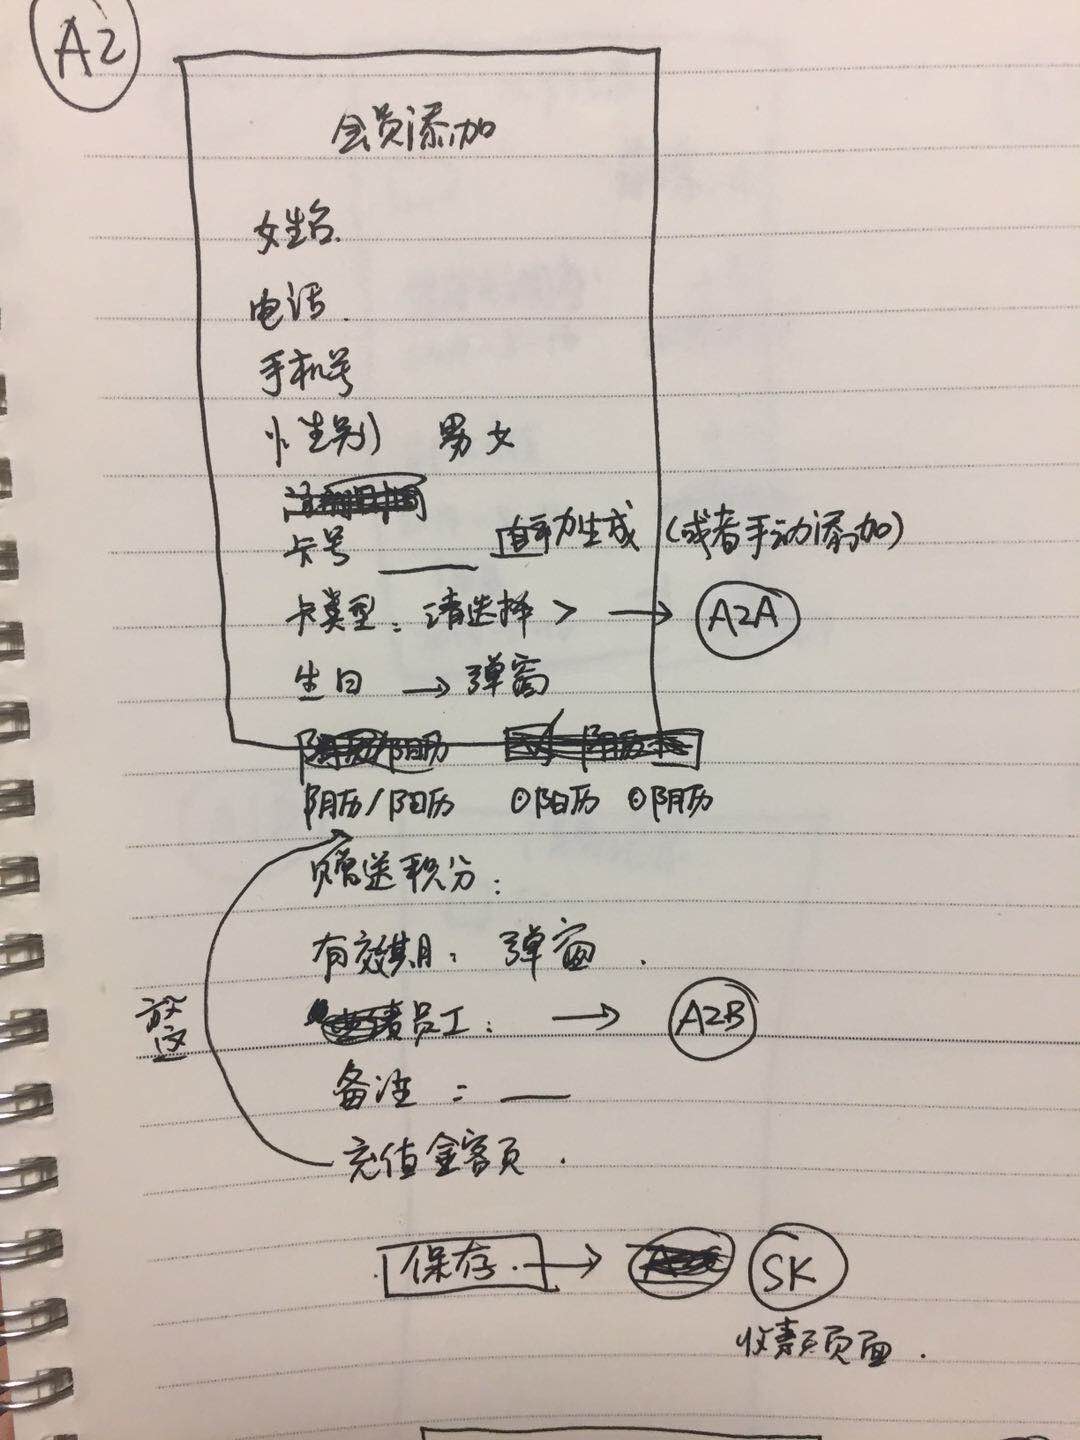 A2
会员添加
姓名.
电话.
手机号
性别 男 女
卡号 ____ 自动生成 (或者手动添加)
卡类型: 请选择 > → A2A
生日 → 弹窗
阴历/阳历 ⊙阳历 ⊙阴历
赠送积分:
有效期: 弹窗.
员工: → A2B
备注: ____
充值金额.
保存. → SK
页面.